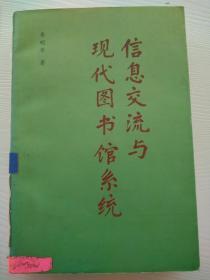 信息交流与
现代图书馆系统